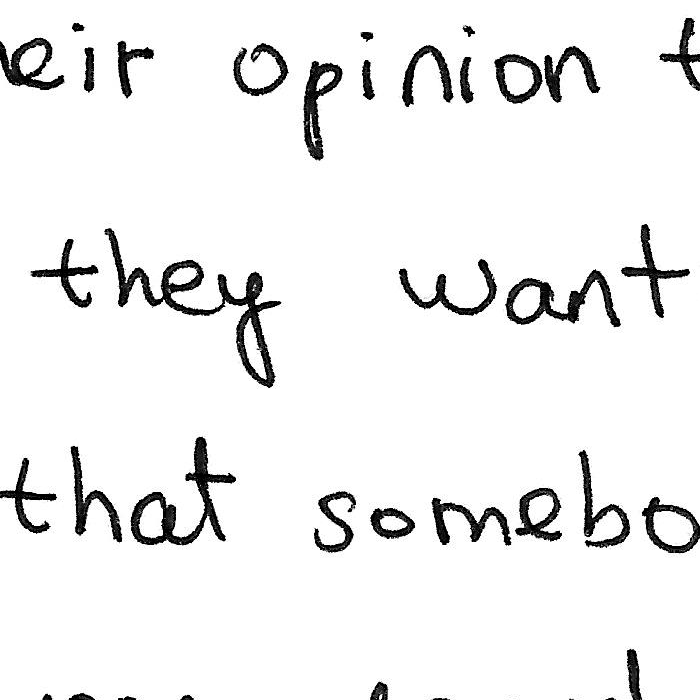 eir opinion t
they want
that somebo